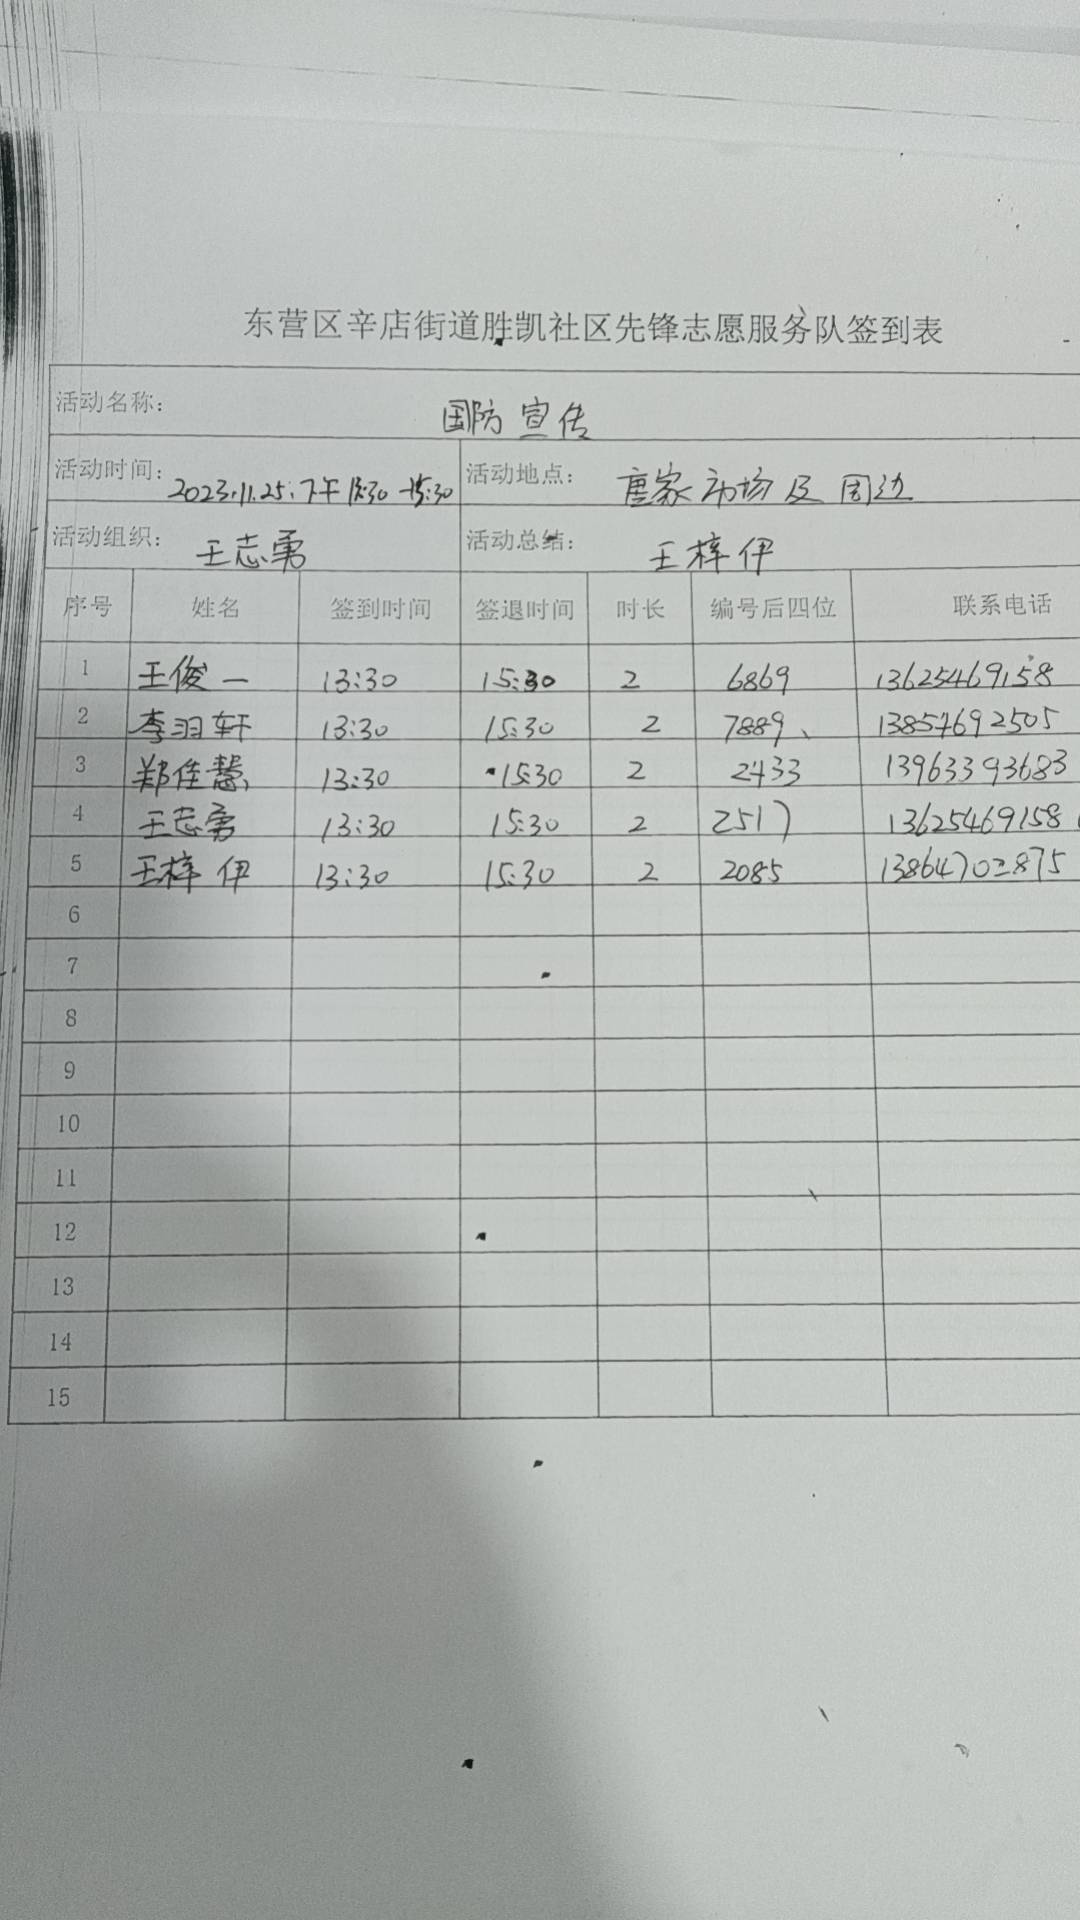 东营区辛店街道胜凯社区先锋志愿服务队签到表
活动名称： 国防宣传
活动时间：2023.11.25.下午13:30-15:30 活动地点： 唐家市场及周边
活动组织： 王志勇 活动总结： 王梓伊
序号 姓名 签到时间 签退时间 时长 编号后四位 联系电话
1 王俊一 13:30 15:30 2 6869 13625469158
2 李羽轩 13:30 15:30 2 7889 13854692505
3 郑佳慧 13:30 15:30 2 2433 13963393683
4 王志勇 13:30 15:30 2 2517 13625469158
5 王梓伊 13:30 15:30 2 2085 13864702875
6
7
8
9
10
11
12
13
14
15